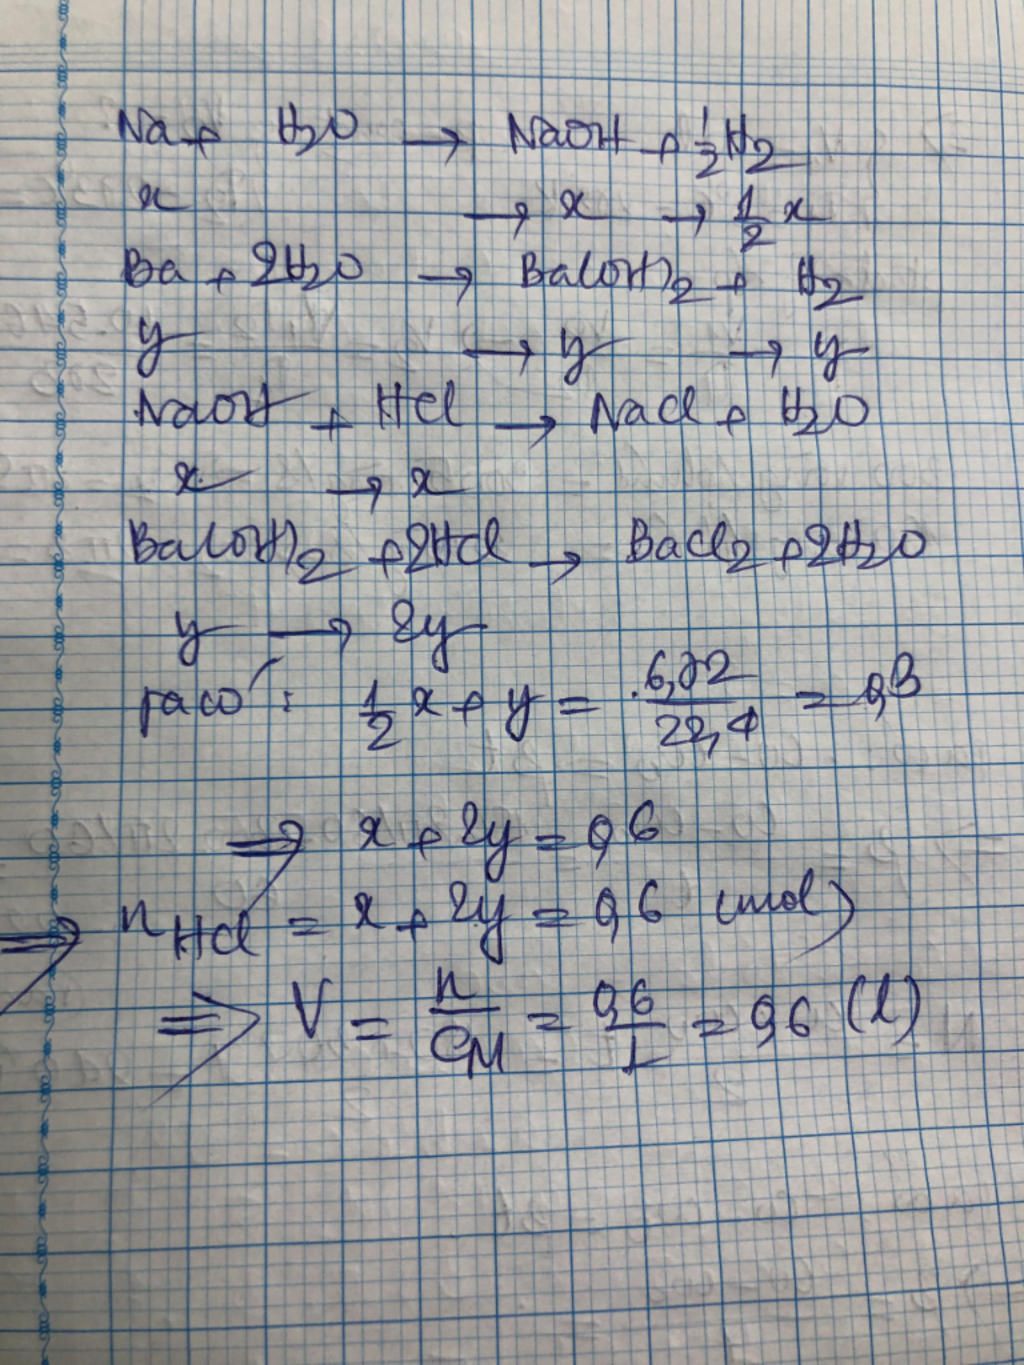 Na + H₂O → NaOH + 1/2 H₂
x → x → 1/2 x
Ba + 2H₂O → Ba(OH)₂ + H₂
y → y → y
NaOH + HCl → NaCl + H₂O
x → x
Ba(OH)₂ + 2HCl → BaCl₂ + 2H₂O
y → 2y
Ta có : 1/2 x + y = 6,72/22,4 = 0,3
⇒ x + 2y = 0,6
⇒ nHCl = x + 2y = 0,6 (mol)
⇒ V = n/CM = 0,6/1 = 0,6 (l)